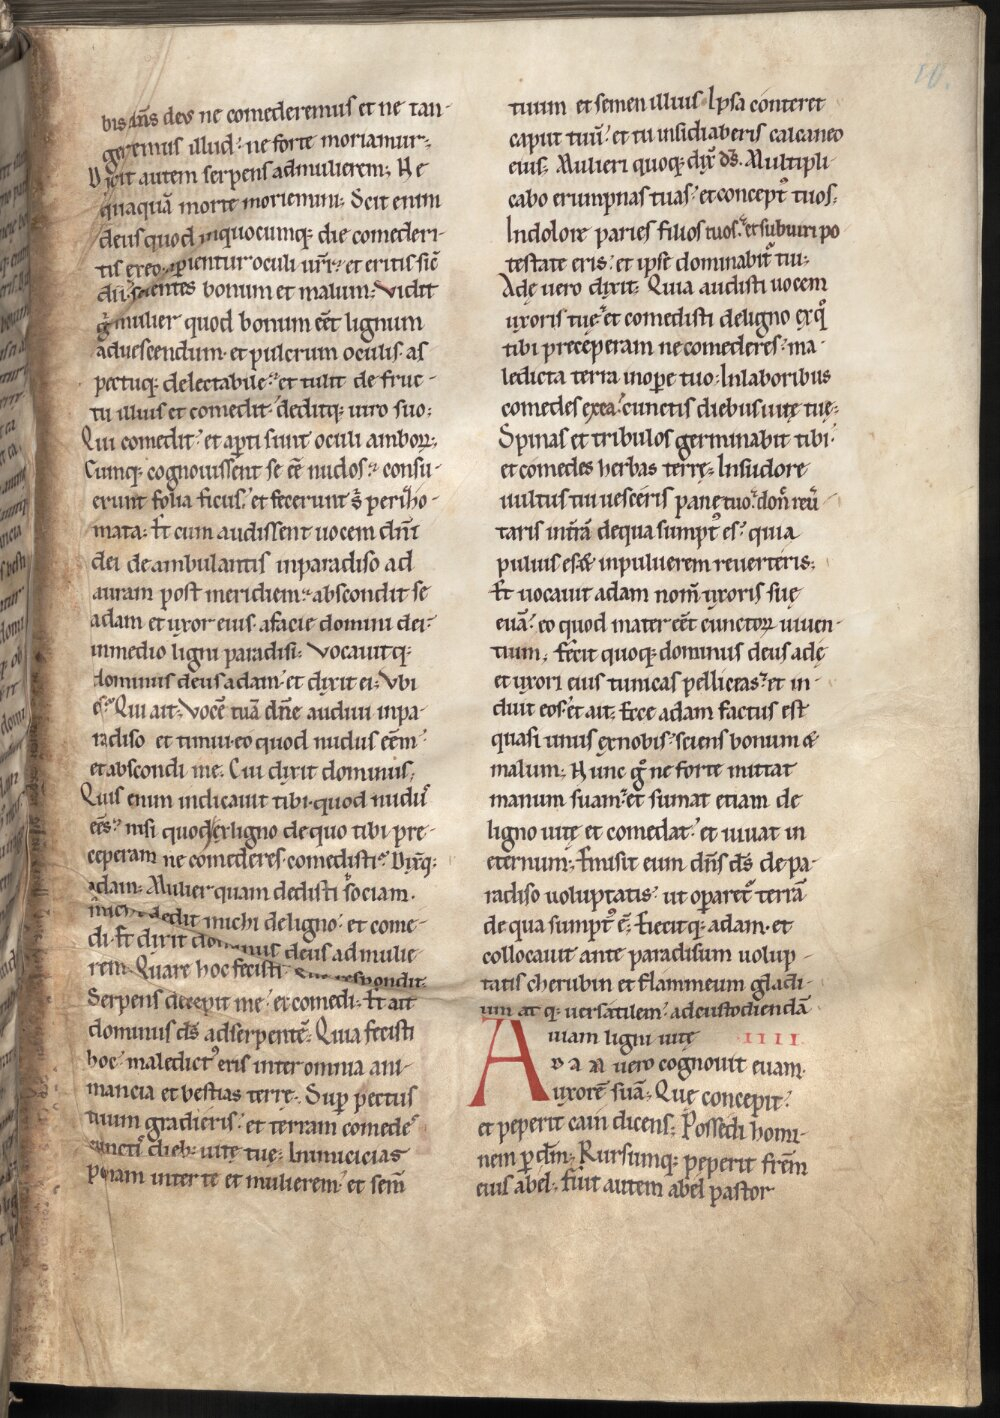 10.
bis in̄s deus ne comederemus et ne tan-
geremus illud: ne forte moriamur;
Dixit autem serpens ad mulierem; Ne
quaquā morte moriemini; Scit enim
deus quod inquocumq; die comederi-
tis ex eo aꝑientur oculi uri: et eritis sic̄
dii scientes bonum et malum; Vidit
g̊ mulier quod bonum eēt lignum
aduescendum et pulcrum oculis as
pectuq; delectabile: et tulit de fruc-
tu illius et comedit deditq; uiro suo;
Qui comedit: et aꝑti sunt oculi amboꝝ;
Cumq; cognouissent se eē nudos: consu-
erunt folia ficus: et fecerunt s̄ perizo-
mata; Et cum audissent uocem dn̄i
dei deambulantis inparadiso ad
auram post meridiem: abscondit se
adam et uxor eius afacie domini dei:
inmedio ligni paradisi; Vocauitq;
dominus deus adam et dixit ei; Vbi
es: Qui ait; Vocē tuā dn̄e audiui inpa-
radiso et timui eo quod nudus eēm
et abscondi me. Cui dixit dominus;
Quis enim indicauit tibi quod nudus
eēs: nisi quod exligno dequo tibi pre-
ceperam ne comederes comedisti: Dixitq;
adam; Mulier quam dedisti sociam
michi dedit michi deligno et come-
di. Et dixit dominus deus ad mulie
rem. Quare hoc fecisti Que respondit.
Serpens decepit me et comedi. Et ait
dominus ds̄ adserpentē; Quia fecisti
hoc maledictꝰ eris inter omnia ani-
mancia et bestias terrę. Suꝑ pectus
tuum gradieris: et terram comedes
cunctis dieb; uitę tuę; Inimicicias
ponam inter te et mulierem et sem̄
tuum et semen illius. Ipsa conteret
caput tuū: et tu insidiaberis calcaneo
eius; Mulieri quoq; dix̄ ds̄. Multipli
cabo erumpnas tuas: et conceptꝰ tuos;
Indolore paries filios tuos: et sub uiri po
testate eris: et ipse dominabit̄ tui;
Adę uero dixit; Quia audisti uocem
uxoris tuę: et comedisti deligno exq̊
tibi preceperam ne comederes: ma-
ledicta terra inoꝑe tuo; Inlaboribus
comedes exea: cunctis diebus uitę tuę;
Spinas et tribulos germinabit tibi
et comedes herbas terrę; Insudore
uultus tui uesceris pane tuo: don̄ reū
taris int̄rā dequa sumptꝰ es: quia
puluis es & inpuluerem reuerteris;
Et uocauit adam nom̄ uxoris suę
euā: eo quod mater eēt cunctoꝝ uiuen-
tium; Fecit quoq; dominus deus adę
et uxori eius tunicas pellicias: et in-
duit eos: et ait; Ecce adam factus est
quasi unus exnobis: sciens bonum &
malum; Nunc g̊ ne forte mittat
manum suam: et sumat etiam de
ligno uitę et comedat: et uiuat in
eternum; Emisit eum dn̄s ds̄ de pa-
radiso uoluptatis: ut oꝑaret̄ terrā
de qua sumptꝰ ē; Eiecitq; adam et
collocauit ante paradisum volup-
tatis cherubin et flammeum gladi-
um atq; uersatilem: adcustodiendā
uiam ligni uitę IIII
ADAM uero cognouit euam
uxorē suā; Que concepit:
et peperit cain dicens; Possedi homi-
nem ꝑ dm̄; Rursumq; peperit frēm
eius abel; Fuit autem abel pastor